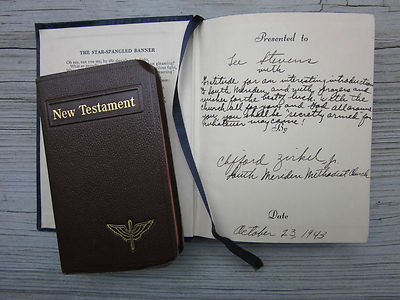 THE STAR-SPANGLED BANNER
New Testament
Presented to
Lee Stevens
with
gratitude for an interesting introduction
to South Meriden, and with prayers and
wishes for the best of luck, with the
church all for you and God all around
you, you shall be "secretly armed" for
whatever may come!
By
Clifford Zirkel, Jr.
South Meriden Methodist Church
Date
October 23, 1943